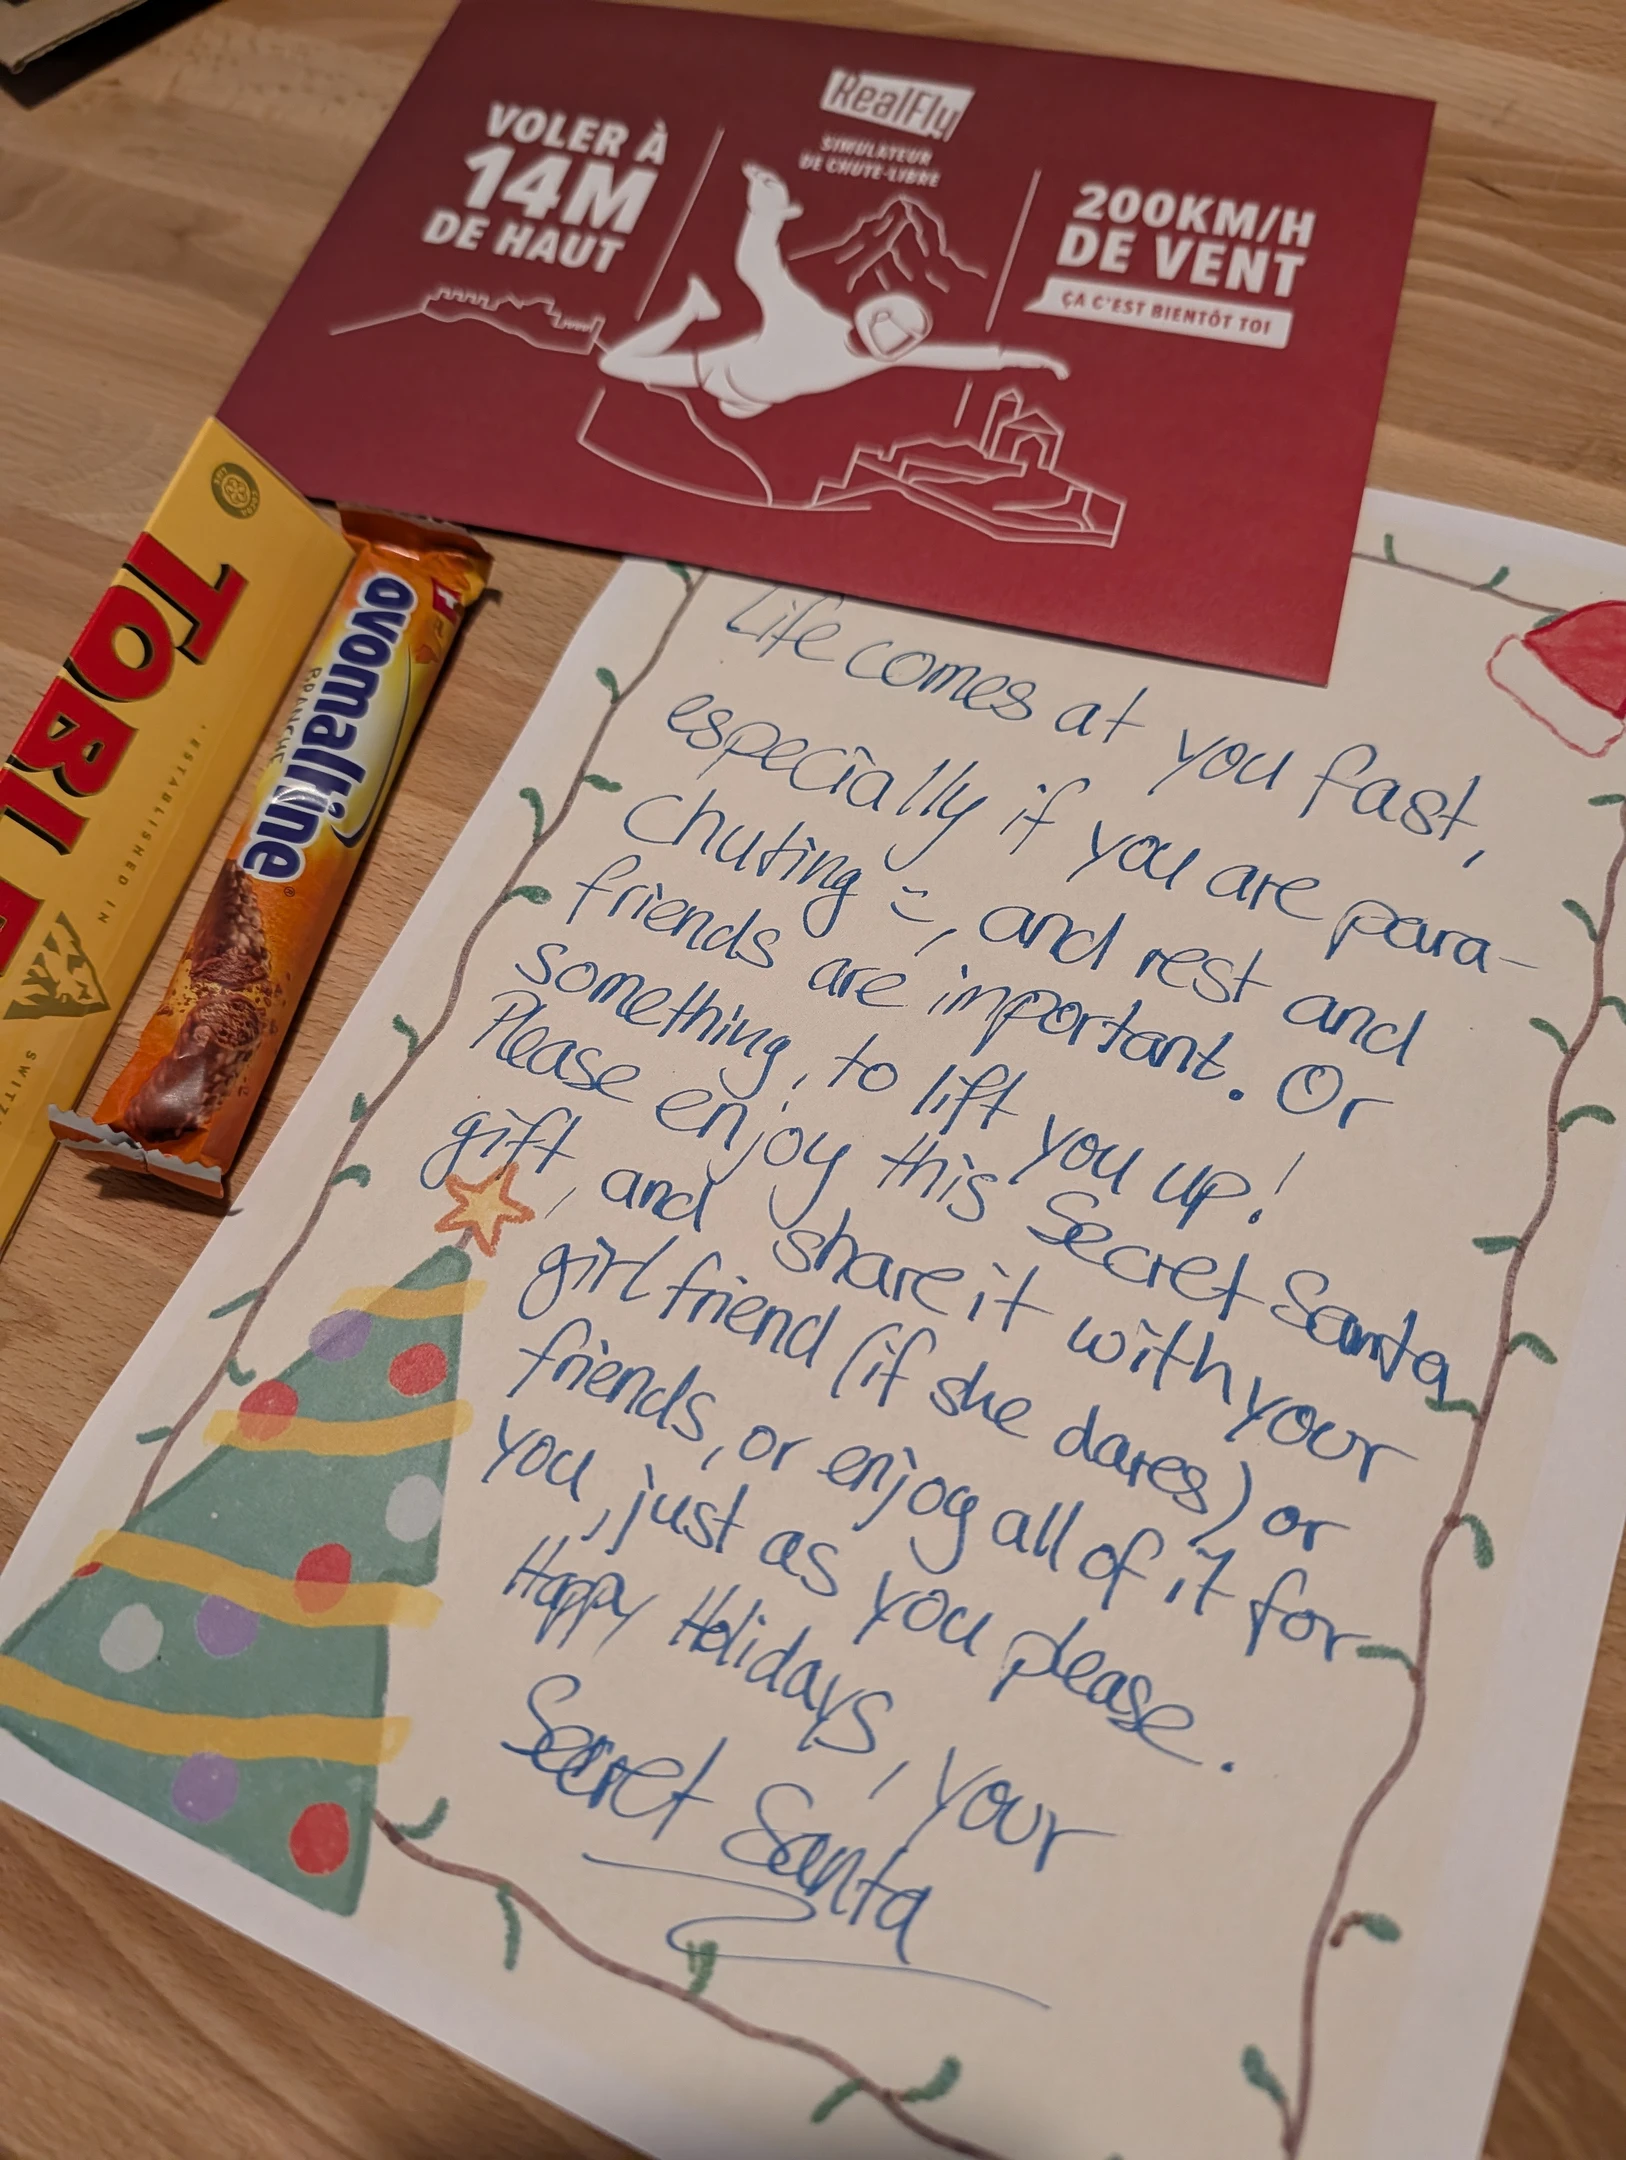 RealFly
SIMULATEUR
DE CHUTE-LIBRE
VOLER À
14M
DE HAUT
200KM/H
DE VENT
ÇA C'EST BIENTÔT TOI
COCOA
LIFE
TOBLE
ESTABLISHED IN
SWITZ
ovomaltine®
BRANCHE
Life comes at you fast,
especially if you are para-
chuting =, and rest and
friends are important. Or
something, to lift you up!
Please enjoy this Secret Santa
gift, and share it with your
girlfriend (if she dares) or
friends, or enjoy all of it for
you, just as you please.
Happy Holidays, your
Secret Santa